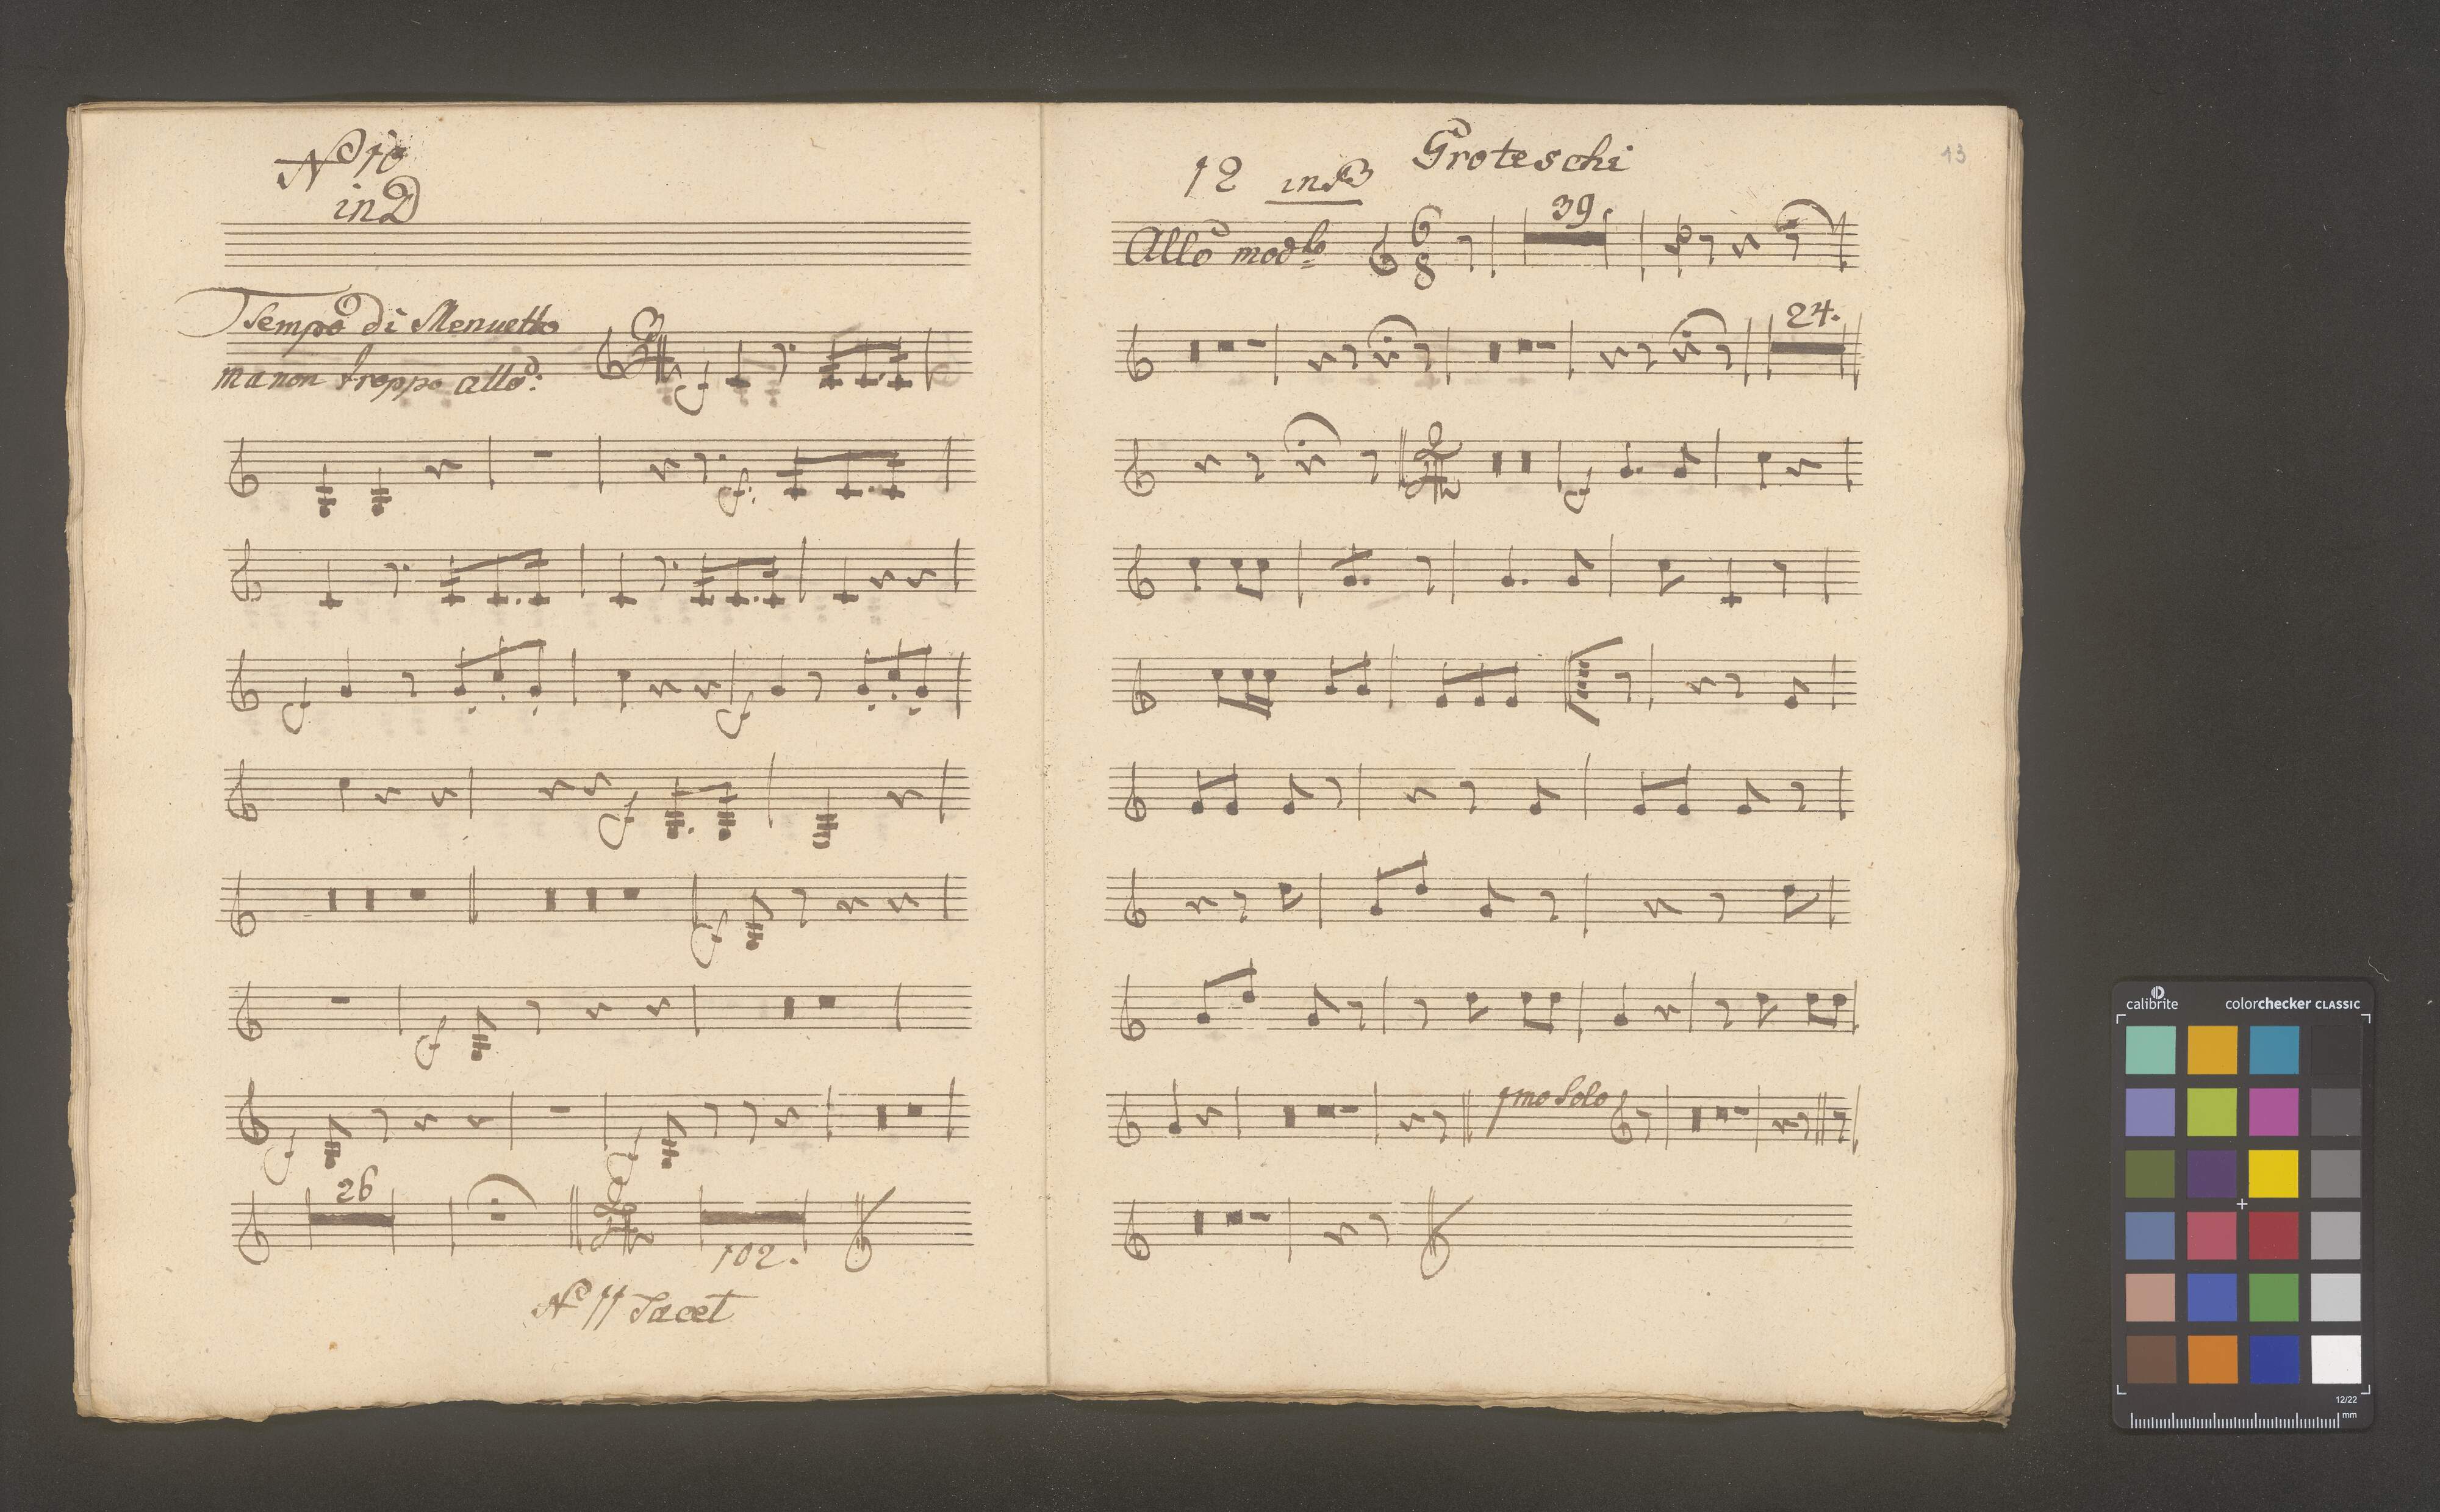 No 10
in D
Tempo di Menuetto
ma non troppo allo:
26
102.
No 11 Tacet
13
Groteschi
12 in B
Allo modto
6
8
39
24.
1mo Solo
calibrite colorchecker CLASSIC
12/22
mm